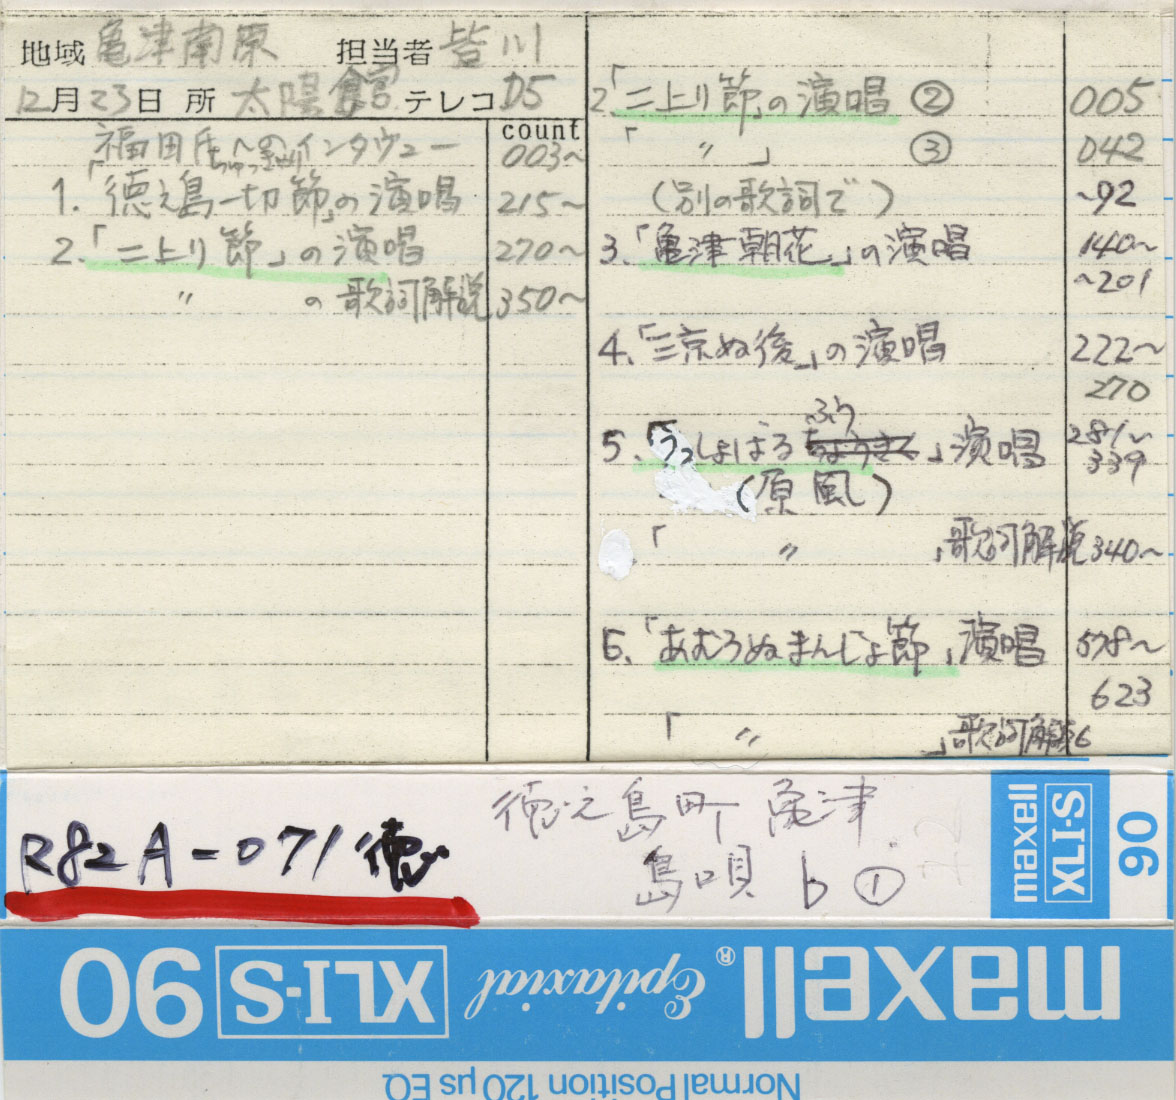 地域 亀津南原 担当者 皆川
12月23日 所 太陽館 テレコ D5
count
福田氏へのインタヴュー 003~
1. 「徳之島一切節」の演唱 215~
2. 「二上り節」の演唱 270~
〃 の歌詞解説 350~
2. 「二上り節」の演唱 ② 005
「 〃 」 ③ 042
(別の歌詞で) ~92
3. 「亀津朝花」の演唱 140~
~201
4. 「三京ぬ後」の演唱 222~
270
ふう
5. 「うっしょばるちょうきく」演唱 281~
339
(原風)
「 〃 」歌詞解説 340~
6. 「あむろぬまんじょ節」演唱 578~
623
「 〃 」歌詞解説
R82A-071徳
徳之島町 亀津
島唄 b ①
maxell
XLI-S
90
maxell® Epitaxial XLI-S 90
Normal Position 120μs EQ